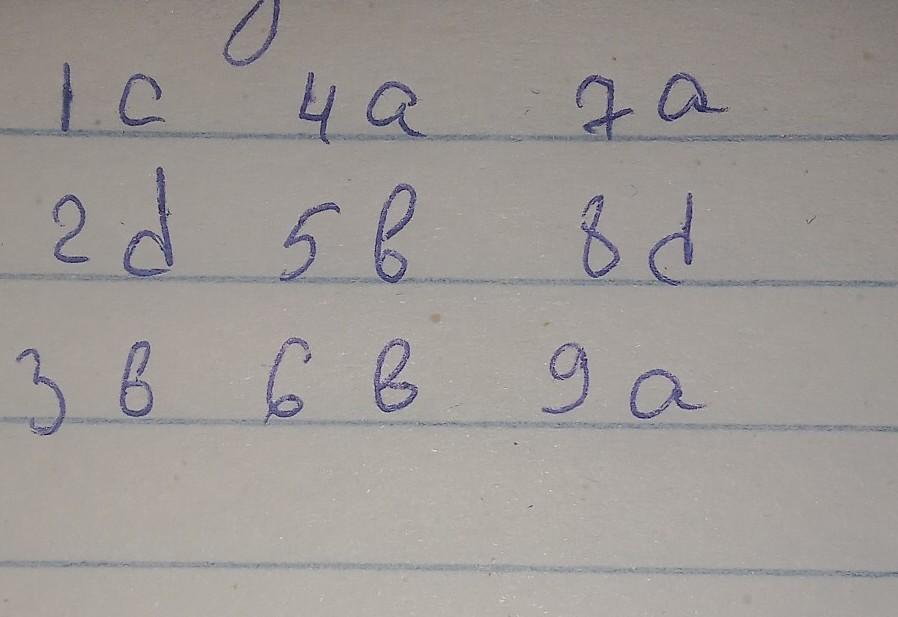 1 c 4 a 7 a
2 d 5 b 8 d
3 b 6 b 9 a